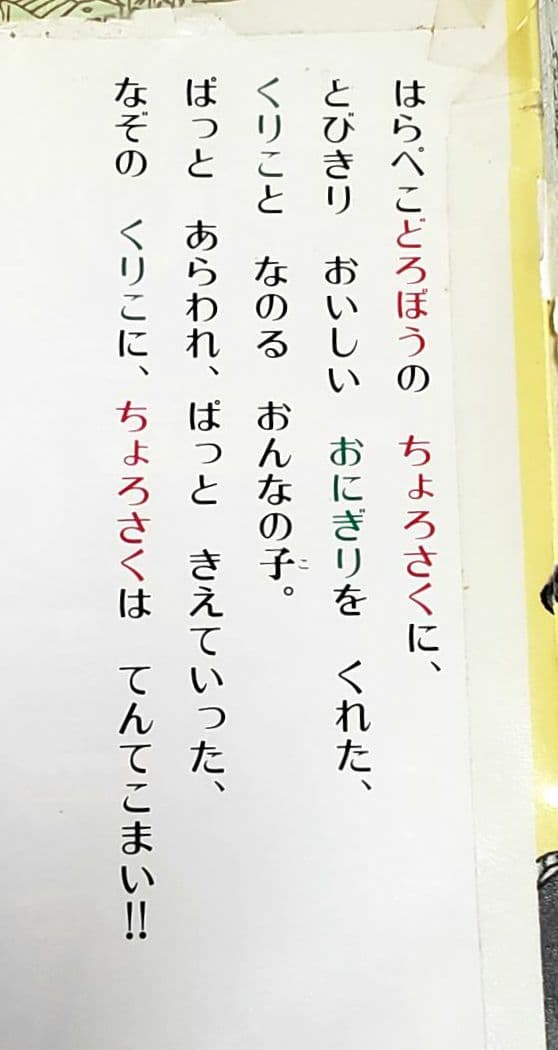 はらぺこどろぼうの　ちょろさくに、
とびきり　おいしい　おにぎりを　くれた、
くりこと　なのる　おんなの子。
こ
ぱっと　あらわれ、ぱっと　きえていった、
なぞの　くりこに、ちょろさくは　てんてこまい!!